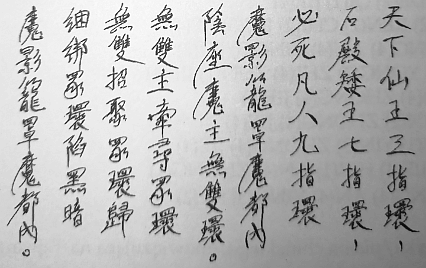 天下仙王三指環，
石殿矮王七指環，
必死凡人九指環
魔影籠罩魔都內
陰座魔主無雙環。
無雙主宰尋眾環
無雙招聚眾環歸
綑綁眾環陷黑暗
魔影籠罩魔都內。